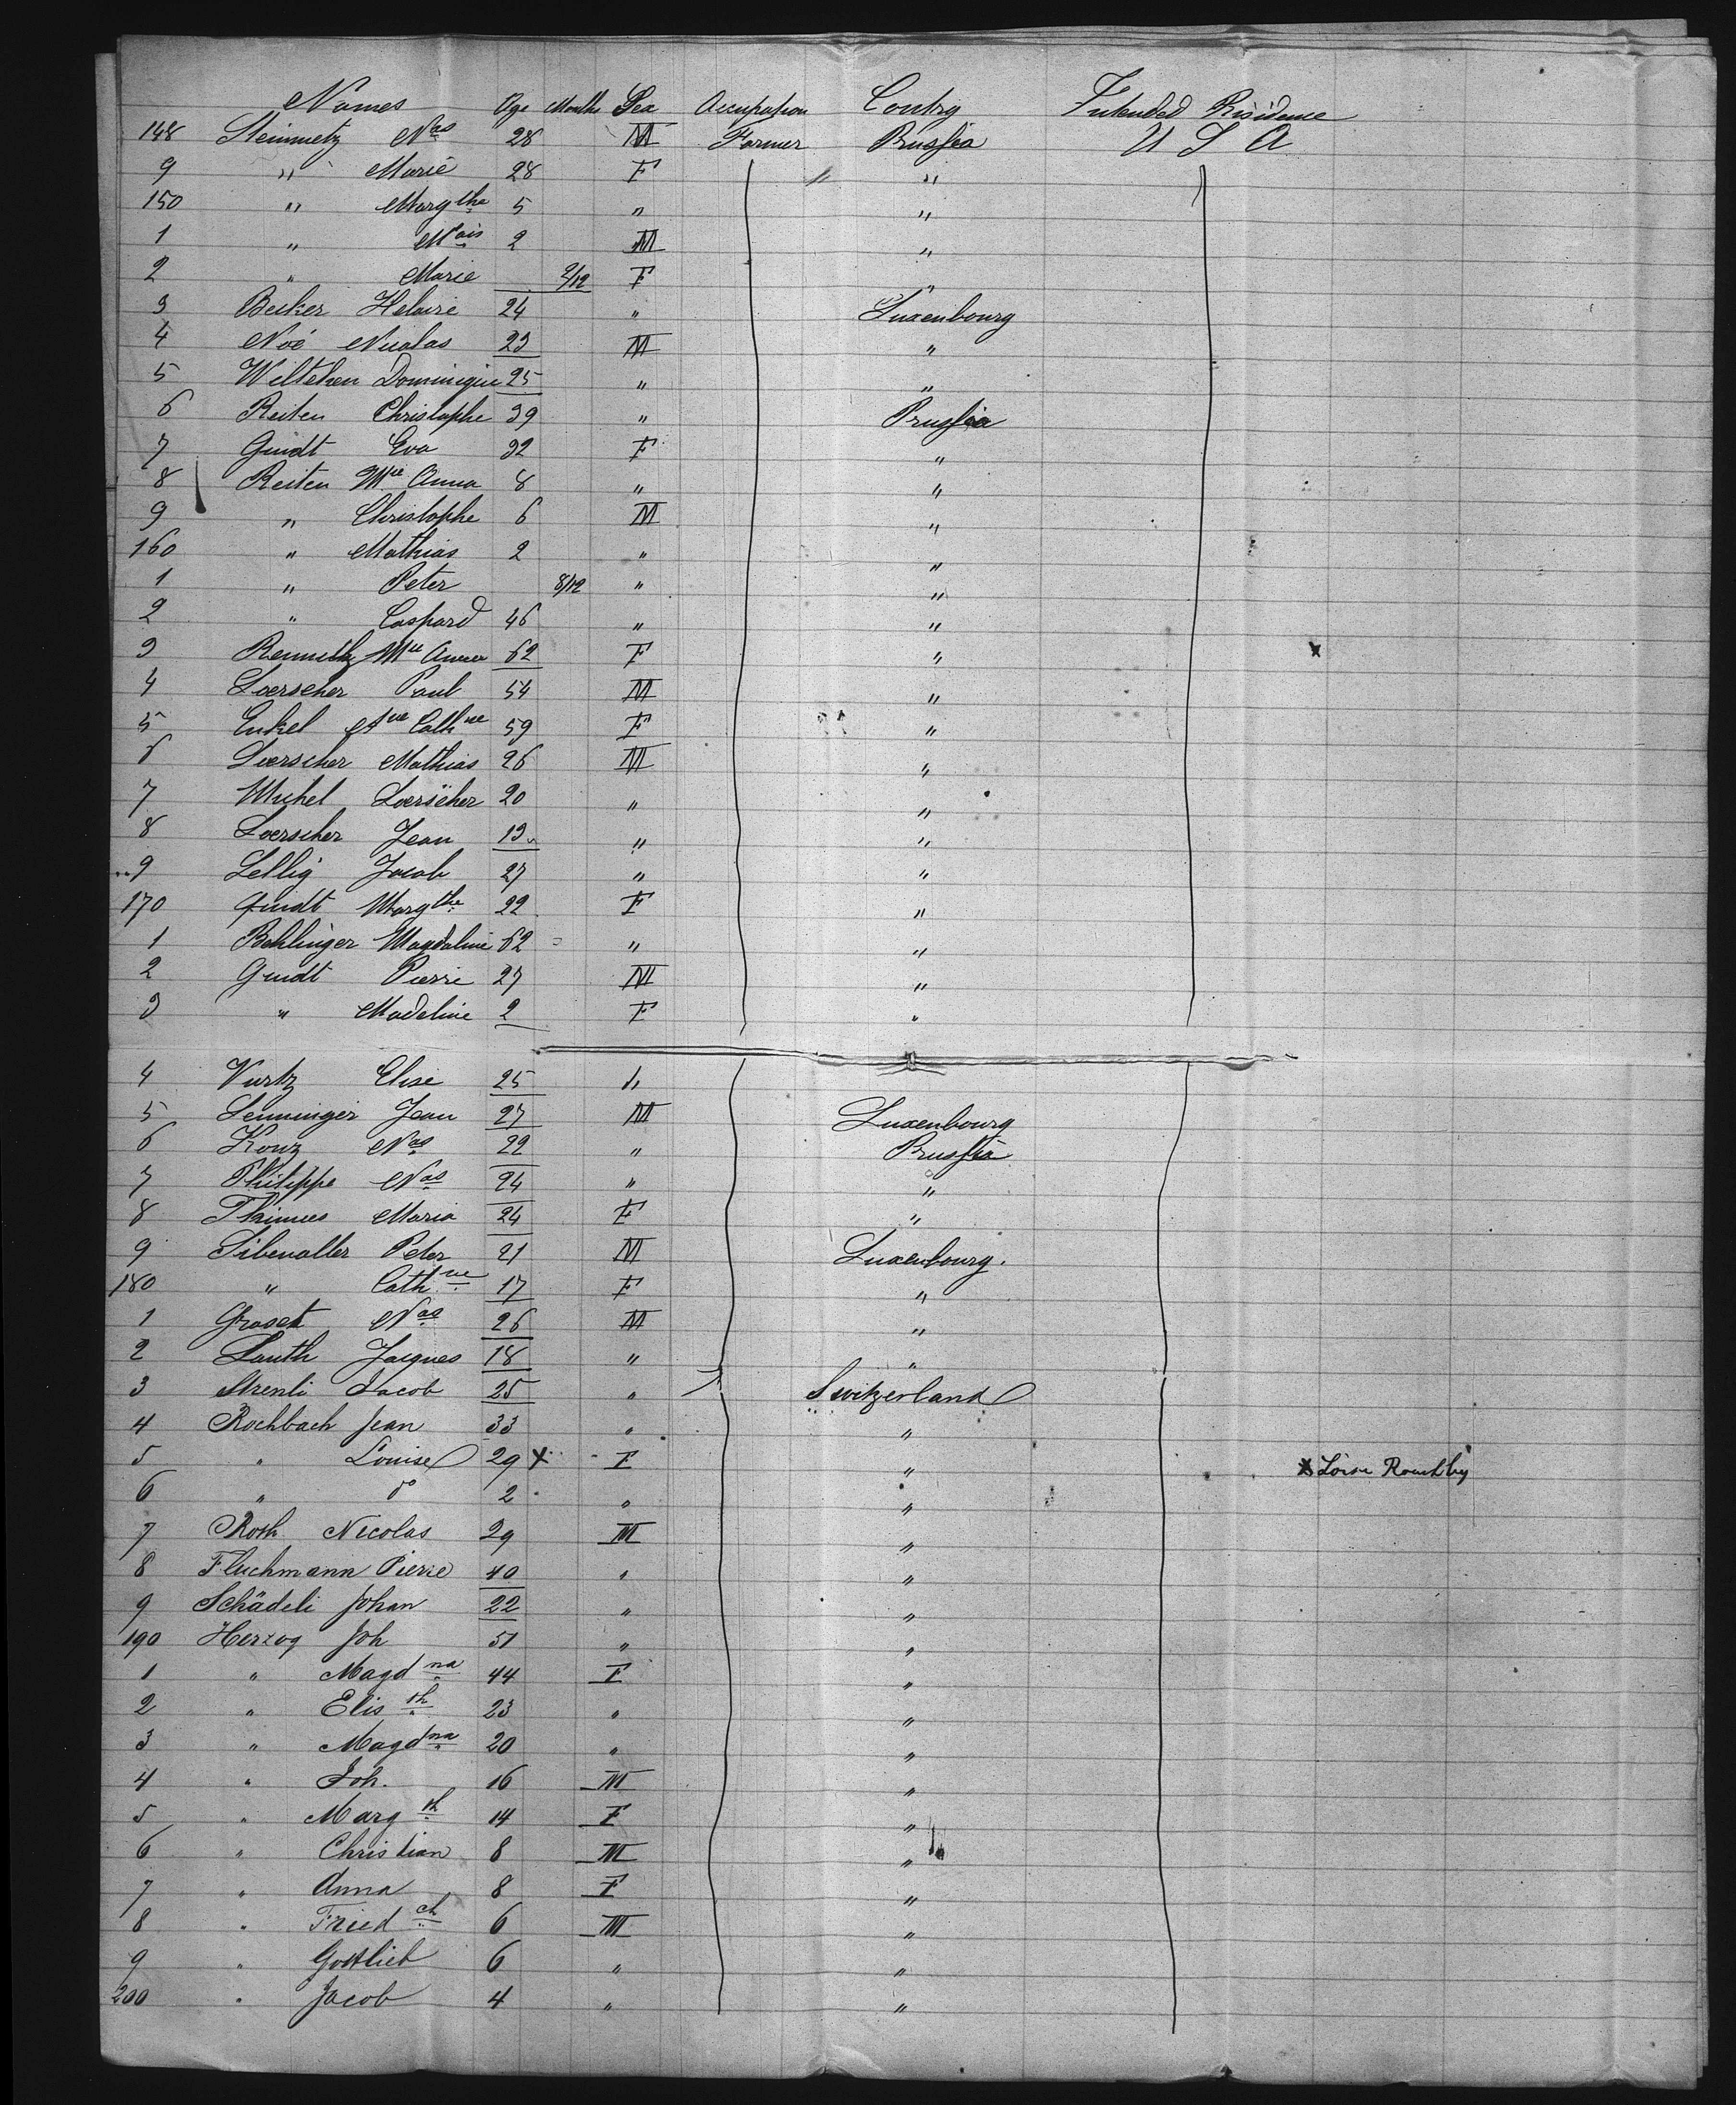 Names Age Months Sex Occupation Contry Intended Résidence
148 Steinmetz Nas 28 M Farmer Prussia U S A
9 " Marie 28 F " "
150 " Margthe 5 " "
1 " Nais 2 M "
2 " Marie 2/12 F "
3 Becker Heloire 24 " Luxenbourg
4 Noé Nicolas 23 M "
5 Wiltchen Dominique 25 " "
6 Reiten Christophe 39 " Prussia
7 Guidt Eva 32 F "
8 Reiten Mie Anna 8 " "
9 " Christophe 6 M "
160 " Mathias 2 " "
1 " Peter 8/12 " "
2 " Caspard 46 " "
3 Mie Anna 62 F " x
4 Loerscher Paul 54 M "
5 Enkel Ane Cathne 59 F "
6 Loerscher Mathias 26 M "
7 Michel Loerscher 20 " "
8 Loerscher Jean 13 " "
9 Lellig Jacob 27 " "
170 Guidt Margthe 22 F "
1 Behlinger Magdaline 62 " "
2 Guidt Pierre 27 M "
3 " Madeline 2 F "
4 Vurtz Elise 25 "
5 Lenninger Jean 27 M Luxenbourg
6 Konz Nas 22 " Prussia
7 Philippe Nas 24 " "
8 Thimes Maria 24 F "
9 Sibenaller Peter 21 M Luxenbourg.
180 " Cathne 17 F "
1 Groset Nas 26 M "
2 Lauth Jacques 18 " "
3 Jacob 25 " Switzerland
4 Rochbach Jean 33 " "
5 " Louise 29 x F " x Loise
6 " do 2 " "
7 Roth Nicolas 29 M "
8 Fluchmann Pierre 40 " "
9 Schädeli Johan 22 " "
190 Herzog Joh 51 " "
1 " Magdna 44 F "
2 " Elisth 23 " "
3 " Magdna 20 " "
4 " Joh. 16 M "
5 " Margth 14 F "
6 " Christian 8 M "
7 " Anna 8 F "
8 " Friedch 6 M "
9 " Gottlieb 6 " "
200 " Jacob 4 " "